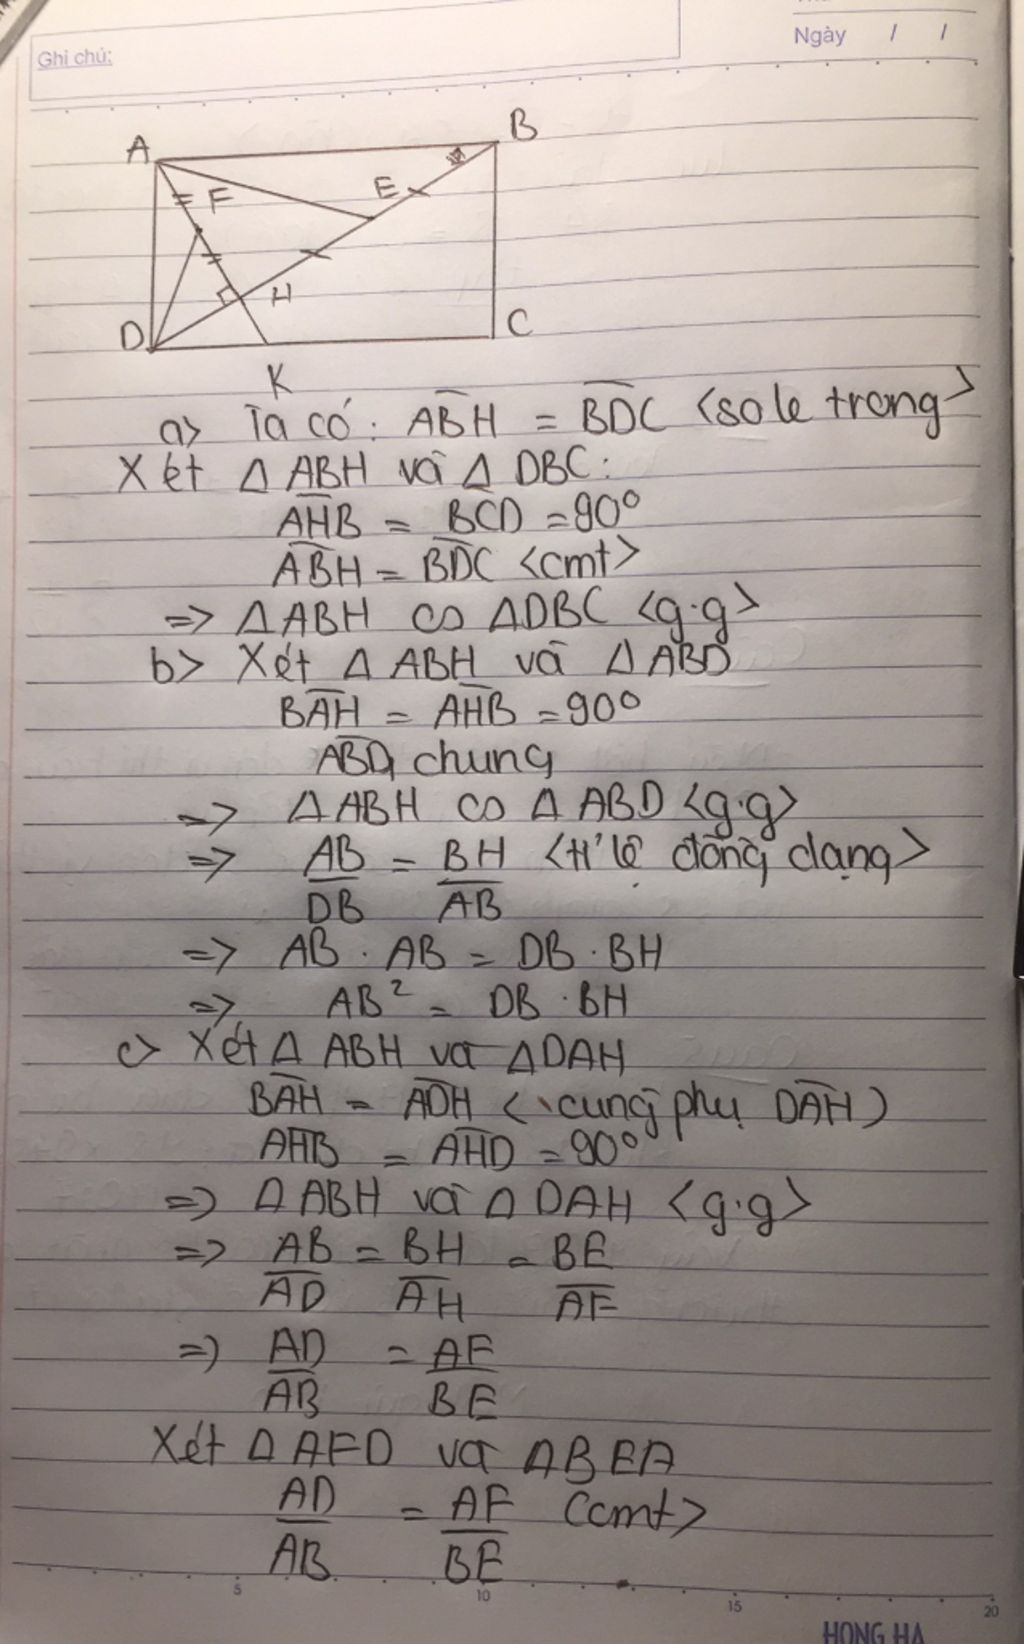 Ghi chú:
Ngày / /
A
B
F
E
H
D
C
K
a> Ta có: ABH = BDC <so le trong>
Xét Δ ABH và Δ DBC:
AHB = BCD = 90°
ABH = BDC <cmt>
=> Δ ABH ∽ Δ DBC <g.g>
b> Xét Δ ABH và Δ ABD
BAH = AHB = 90°
ABD chung
=> Δ ABH ∽ Δ ABD <g.g>
=> AB/DB = BH/AB <tỉ lệ đồng dạng>
=> AB . AB = DB . BH
=> AB² = DB . BH
c> Xét Δ ABH và Δ DAH
BAH = ADH < cùng phụ DAH)
AHB = AHD = 90°
=> Δ ABH và Δ DAH <g.g>
=> AB/AD = BH/AH = BE/AF
=> AD/AB = AF/BE
Xét Δ AFD và Δ BEA
AD/AB = AF/BE (cmt>
5 10 15 20
HONG HA